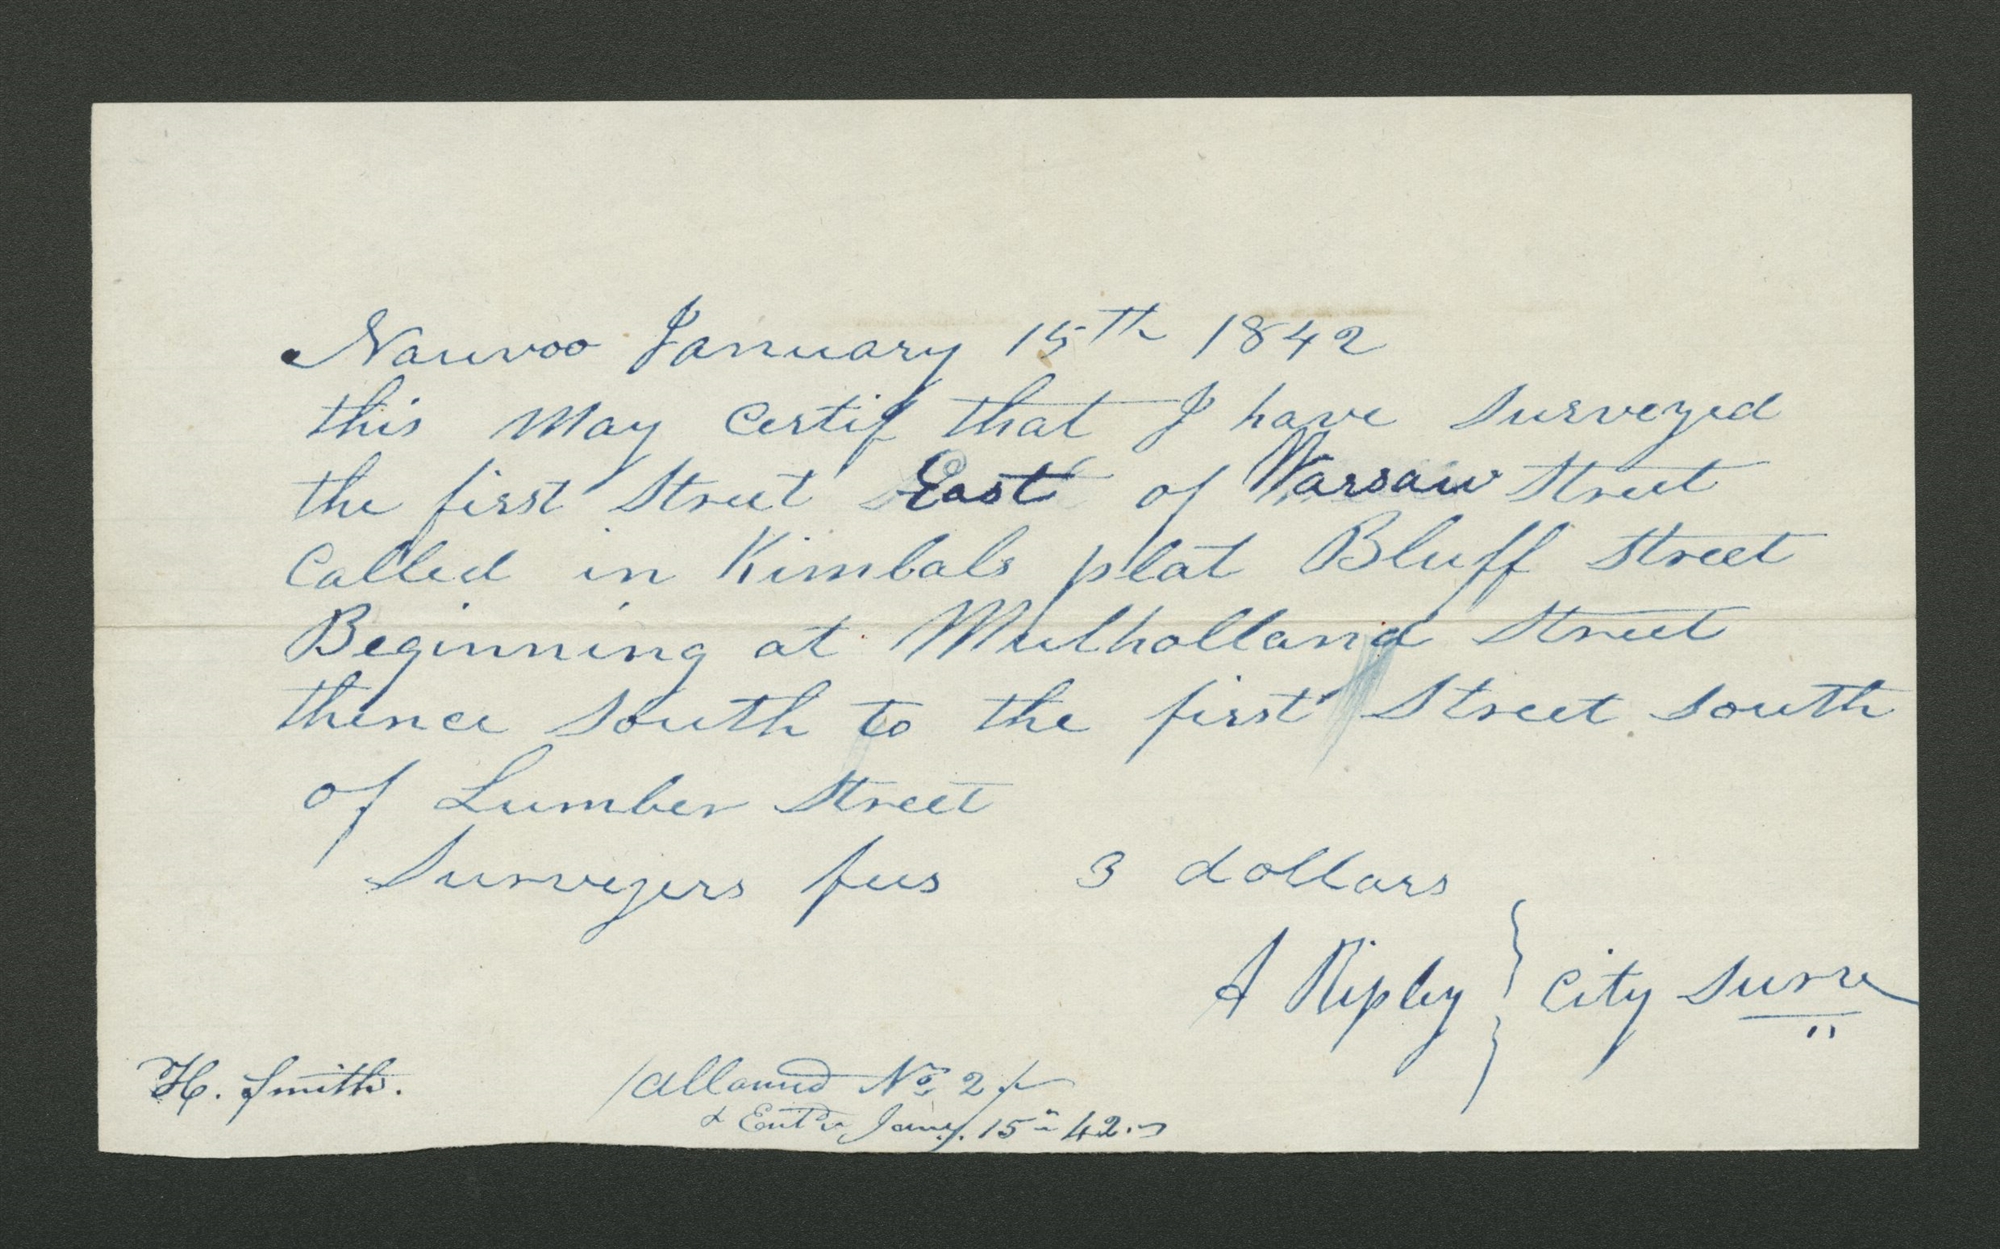 Nauvoo January 15th 1842
this may certif that I have surveyed
the first Street East of Warsaw Street
Called in Kimbals plat Bluff Street
Beginning at Mulholland Street
thence south to the first Street south
of Lumber Street
Surveyers fees 3 dollars
A Ripley } City Surve
H. Smith.
/allowed No. 2/
& Ent'd Jany. 15th 42.